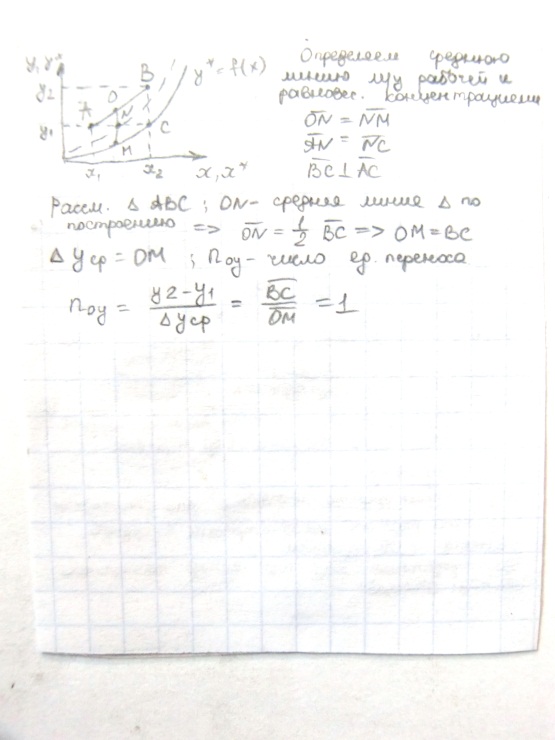 y, y*
y2
y1
A
O
B
N
M
C
y* = f(x)
x1
x2
x, x*
Определяем среднюю
линию м/у рабочей и
равновес. концентрациями
ON = NM
AN = NC
BC ⊥ AC
Рассм. Δ ABC ; ON - средняя линия Δ по
построению => ON = 1/2 BC => OM = BC
Δ yср = OM ; noy - число ед. переноса
noy = y2 - y1 / Δ yср = BC / OM = 1